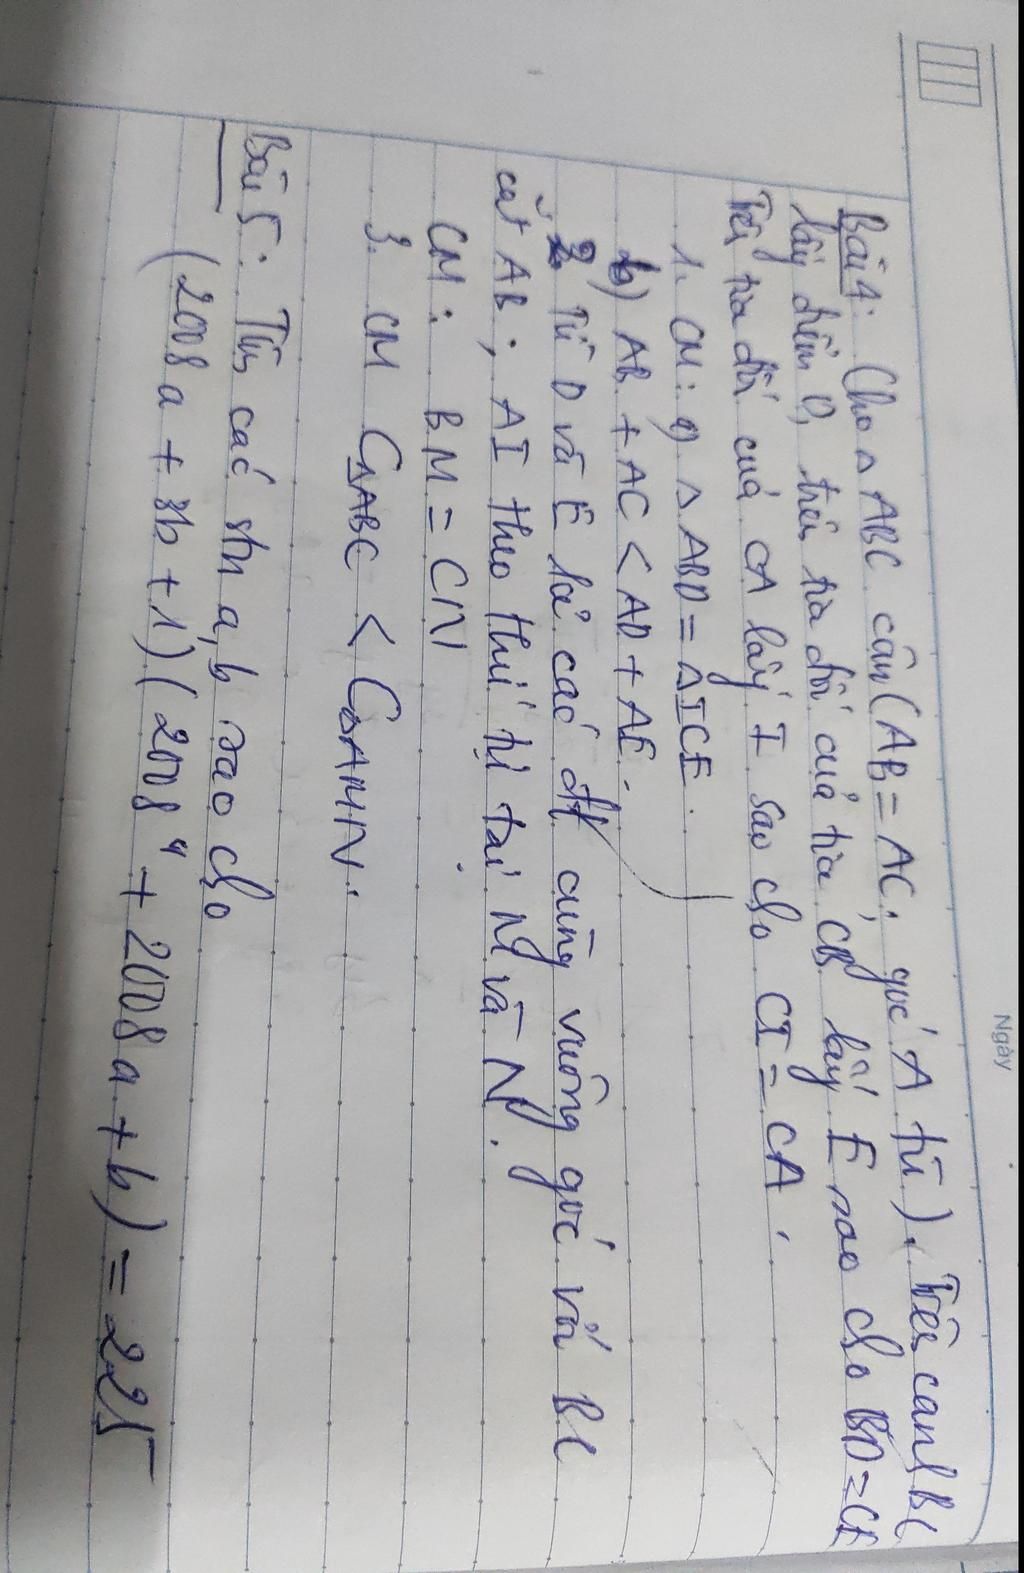 Ngày
Bài 4: Cho △ ABC cân (AB = AC, góc A tù). Trên cạnh BC
lấy điểm D, trên tia đối của tia CB lấy E sao cho BD = CE
Trên tia đối của CA lấy I sao cho CI = CA.
1. CM: a) △ ABD = △ICE.
b) AB + AC < AD + AE.
2. Từ D và E kẻ các đt cùng vuông góc với BC
cắt AB; AI theo thứ tự tại M và N.
CM: BM = CN
3. CM C△ABC < C△AMN.
Bài 5: Tìm các stn a, b sao cho
(2008a + 3b + 1)(2008ᵃ + 2008a + b) = 225